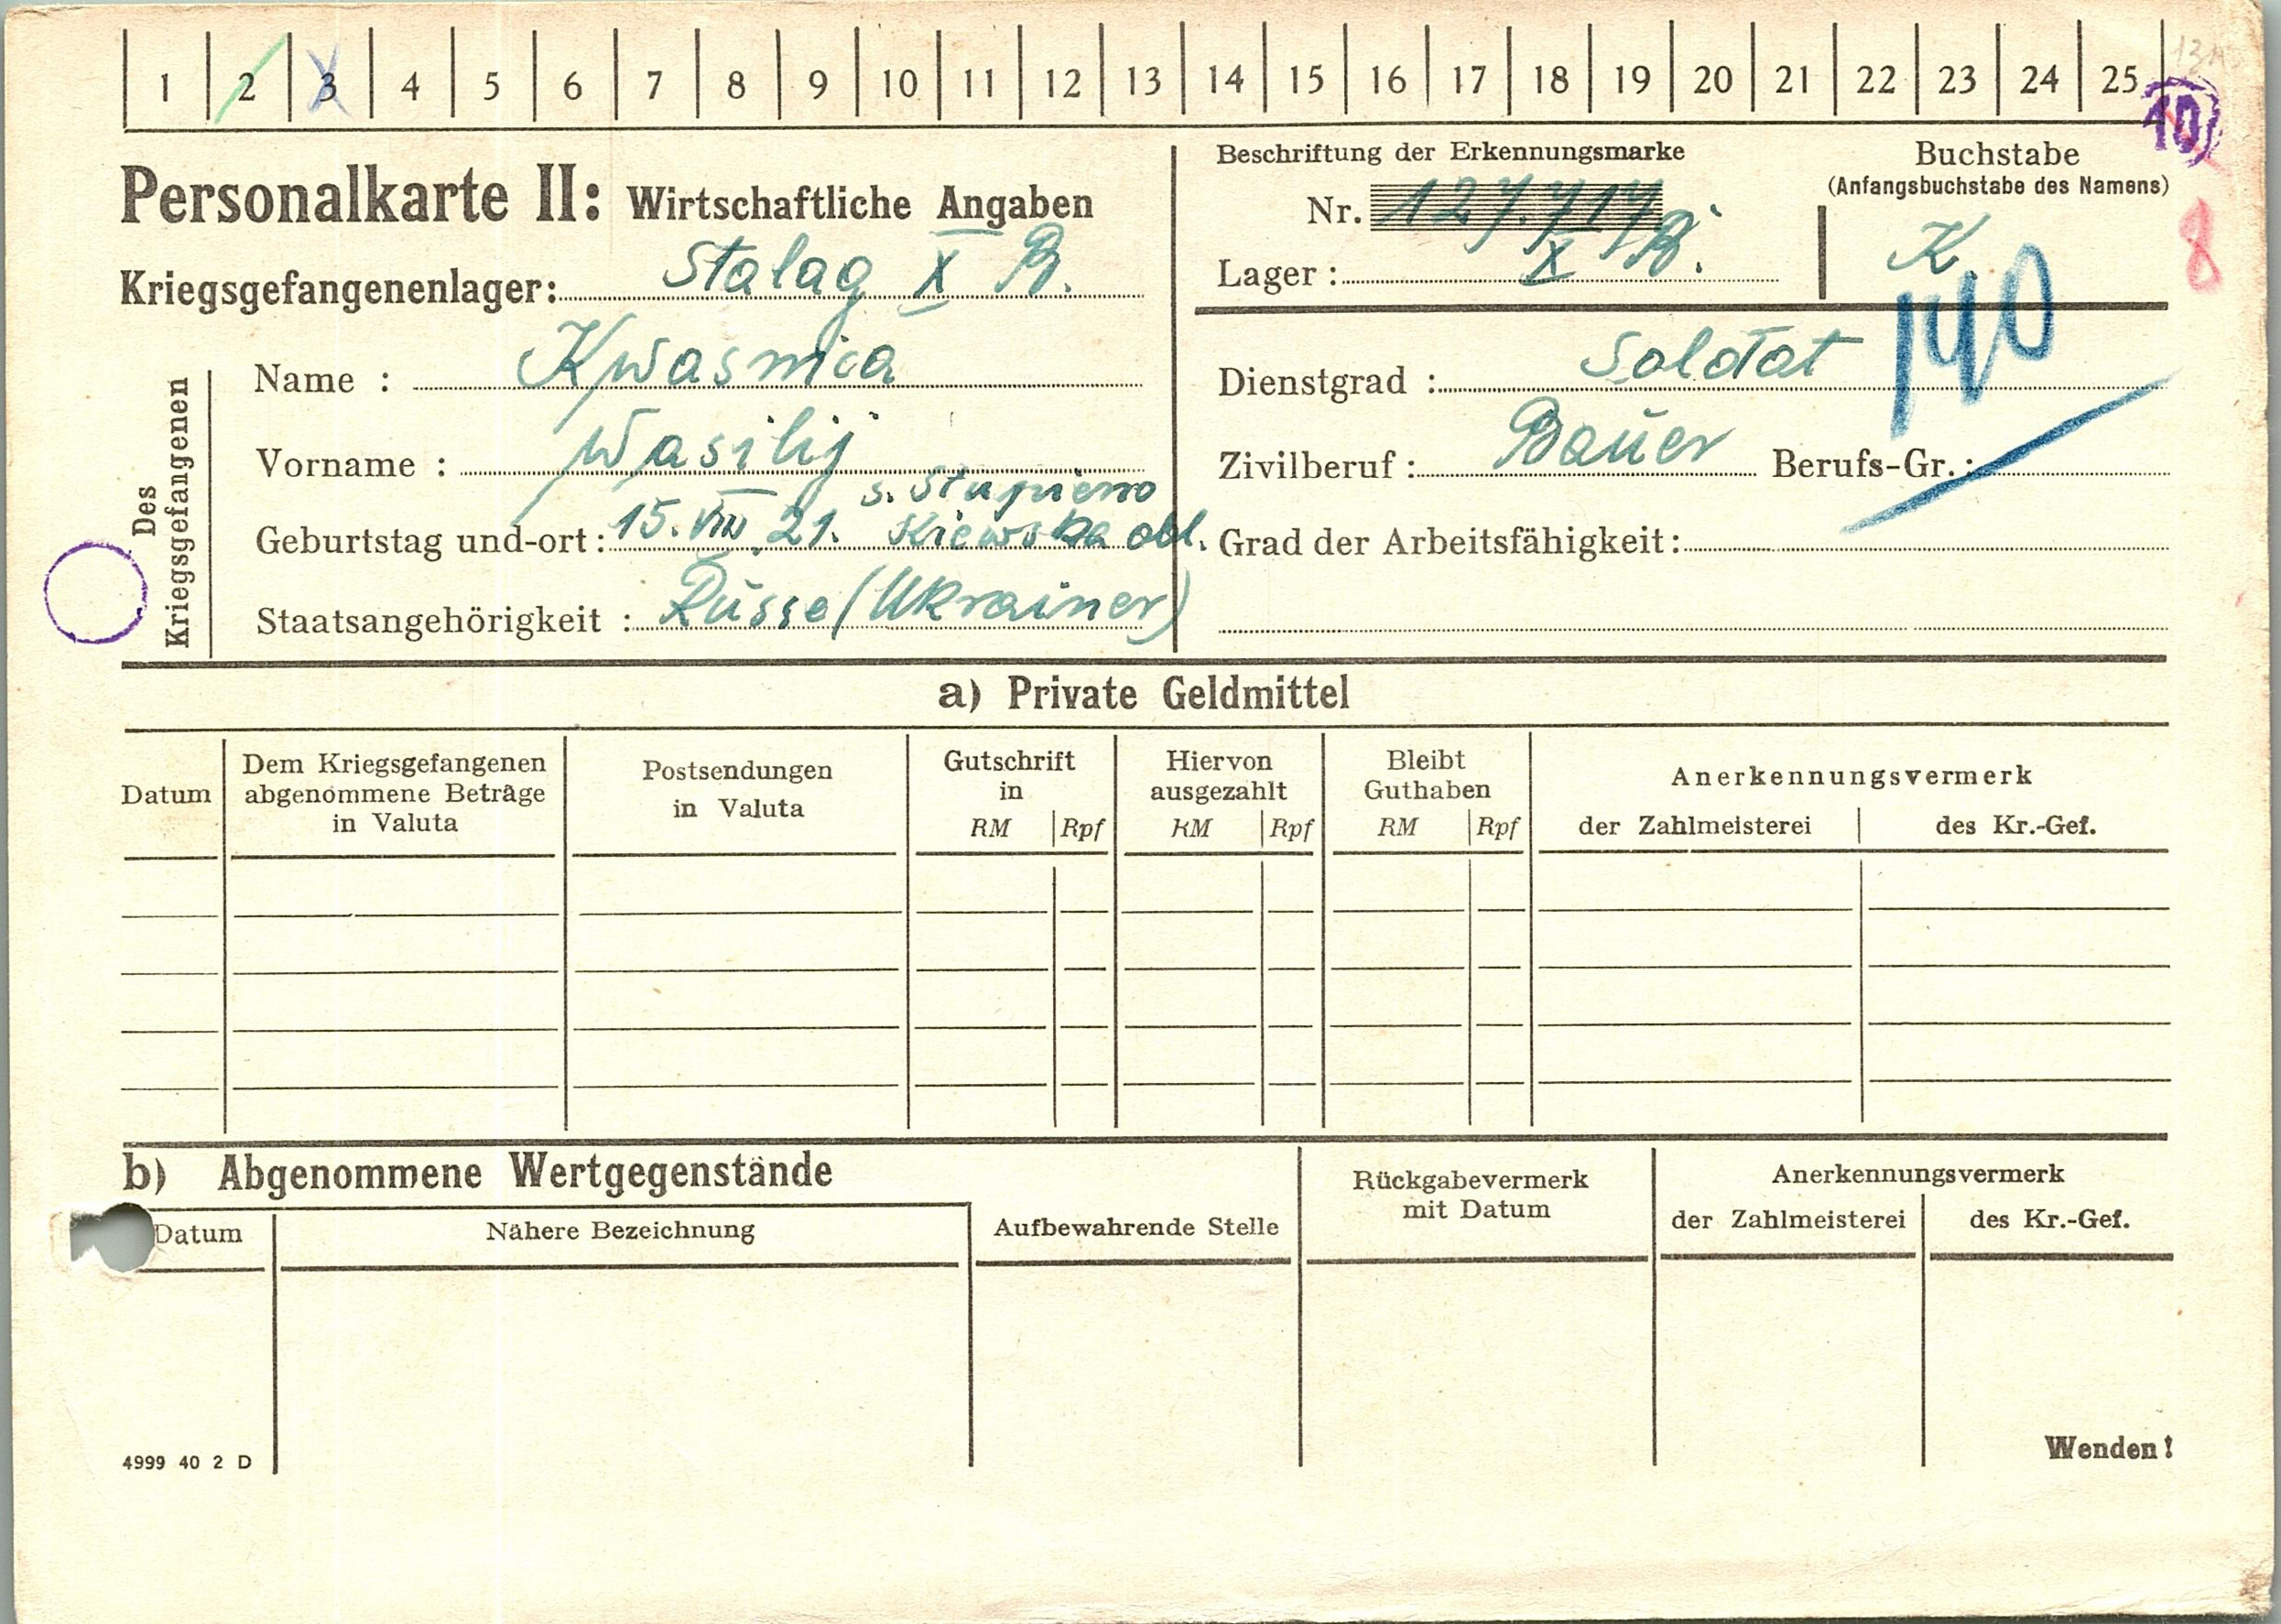 1 2 3 4 5 6 7 8 9 10 11 12 13 14 15 16 17 18 19 20 21 22 23 24 25
10
Personalkarte II: Wirtschaftliche Angaben
Kriegsgefangenenlager: Stalag X B.
Beschriftung der Erkennungsmarke
Nr. 127.717
Lager: X B.
Buchstabe
(Anfangsbuchstabe des Namens)
K.
8
140
Des Kriegsgefangenen
Name : Kwasnica
Vorname : Wasilij
s. Stupieno
Geburtstag und-ort: 15. VIII. 21. Kiewska obl.
Staatsangehörigkeit : Russe (Ukrainer)
Dienstgrad : Soldat
Zivilberuf: Bauer Berufs-Gr.:
Grad der Arbeitsfähigkeit:
a) Private Geldmittel
Datum
Dem Kriegsgefangenen
abgenommene Beträge
in Valuta
Postsendungen
in Valuta
Gutschrift
in
RM Rpf
Hiervon
ausgezahlt
RM Rpf
Bleibt
Guthaben
RM Rpf
Anerkennungsvermerk
der Zahlmeisterei des Kr.-Gef.
b) Abgenommene Wertgegenstände
Datum Nähere Bezeichnung
Aufbewahrende Stelle
Rückgabevermerk
mit Datum
Anerkennungsvermerk
der Zahlmeisterei des Kr.-Gef.
4999 40 2 D
Wenden!